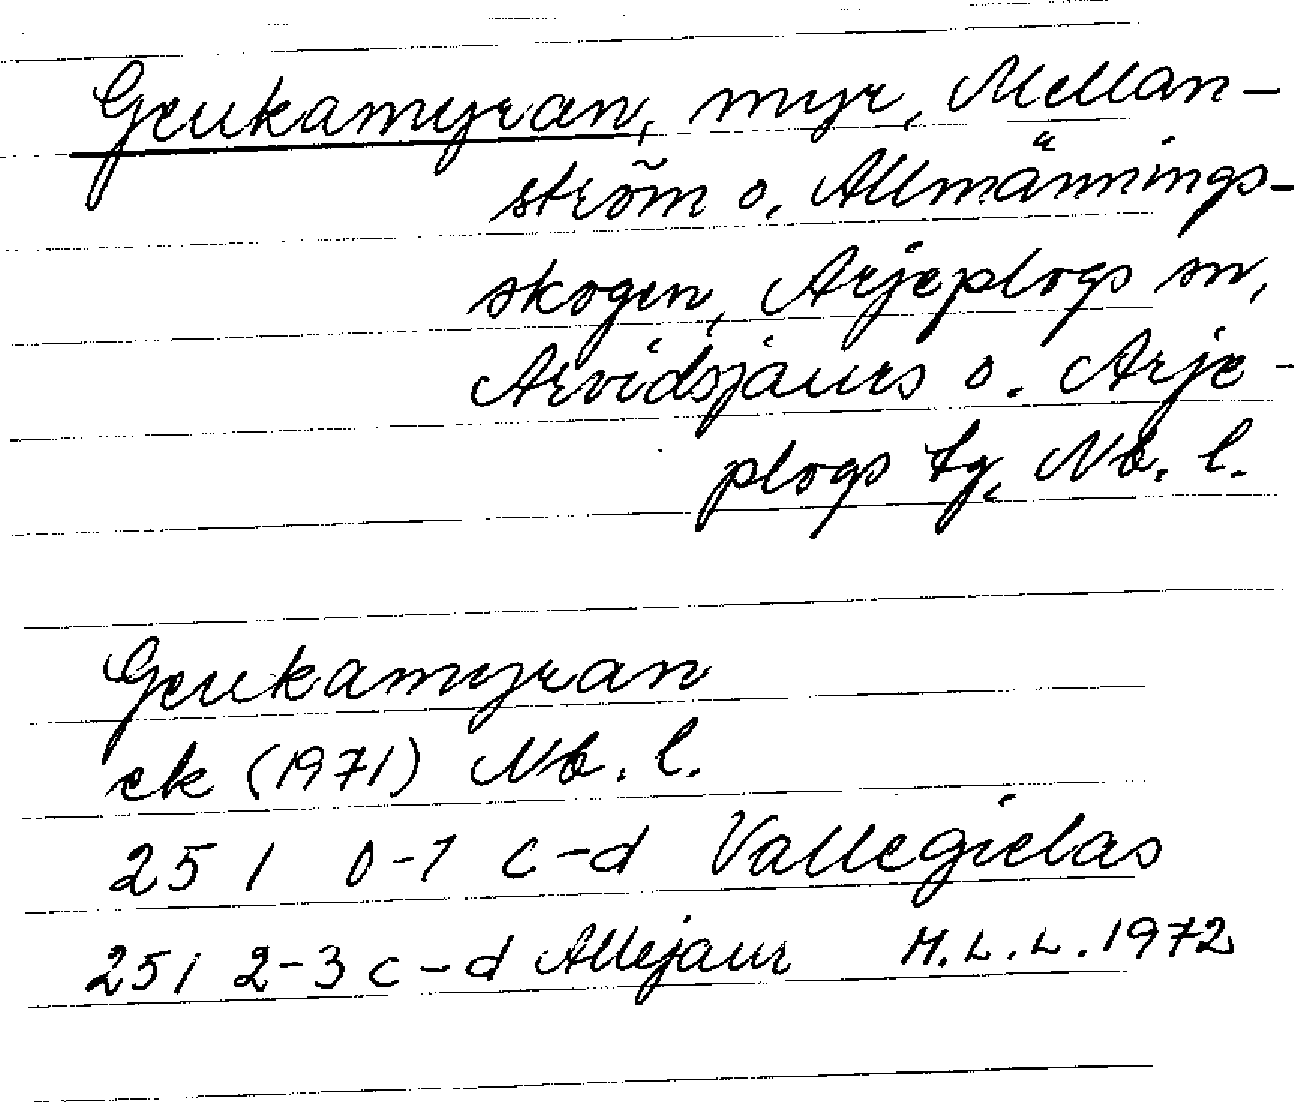 Geukamyran, myr, Mellan-
ström o. Allmännings-
skogen, Arjeplogs sn,
Arvidsjaurs o. Arje-
plogs tg, Nb. l.
Geukamyran
ek (1971) Nb. l.
25 1 0-1 c-d Vallegielas
251 2-3 c-d Allejaur H.L.L. 1972